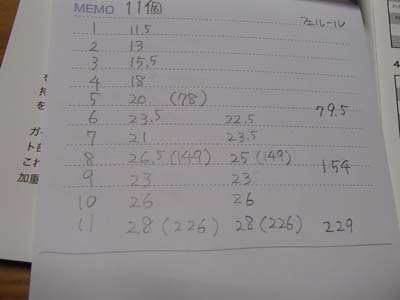 MEMO 11個 フェルール
1 11.5
2 13
3 15.5
4 18
5 20 (78) 79.5
6 23.5 22.5
7 21 23.5
8 26.5 (149) 25 (149) 154
9 23 23
10 26 26
11 28 (226) 28 (226) 229
を
ガ
ト自
これ
加重
4